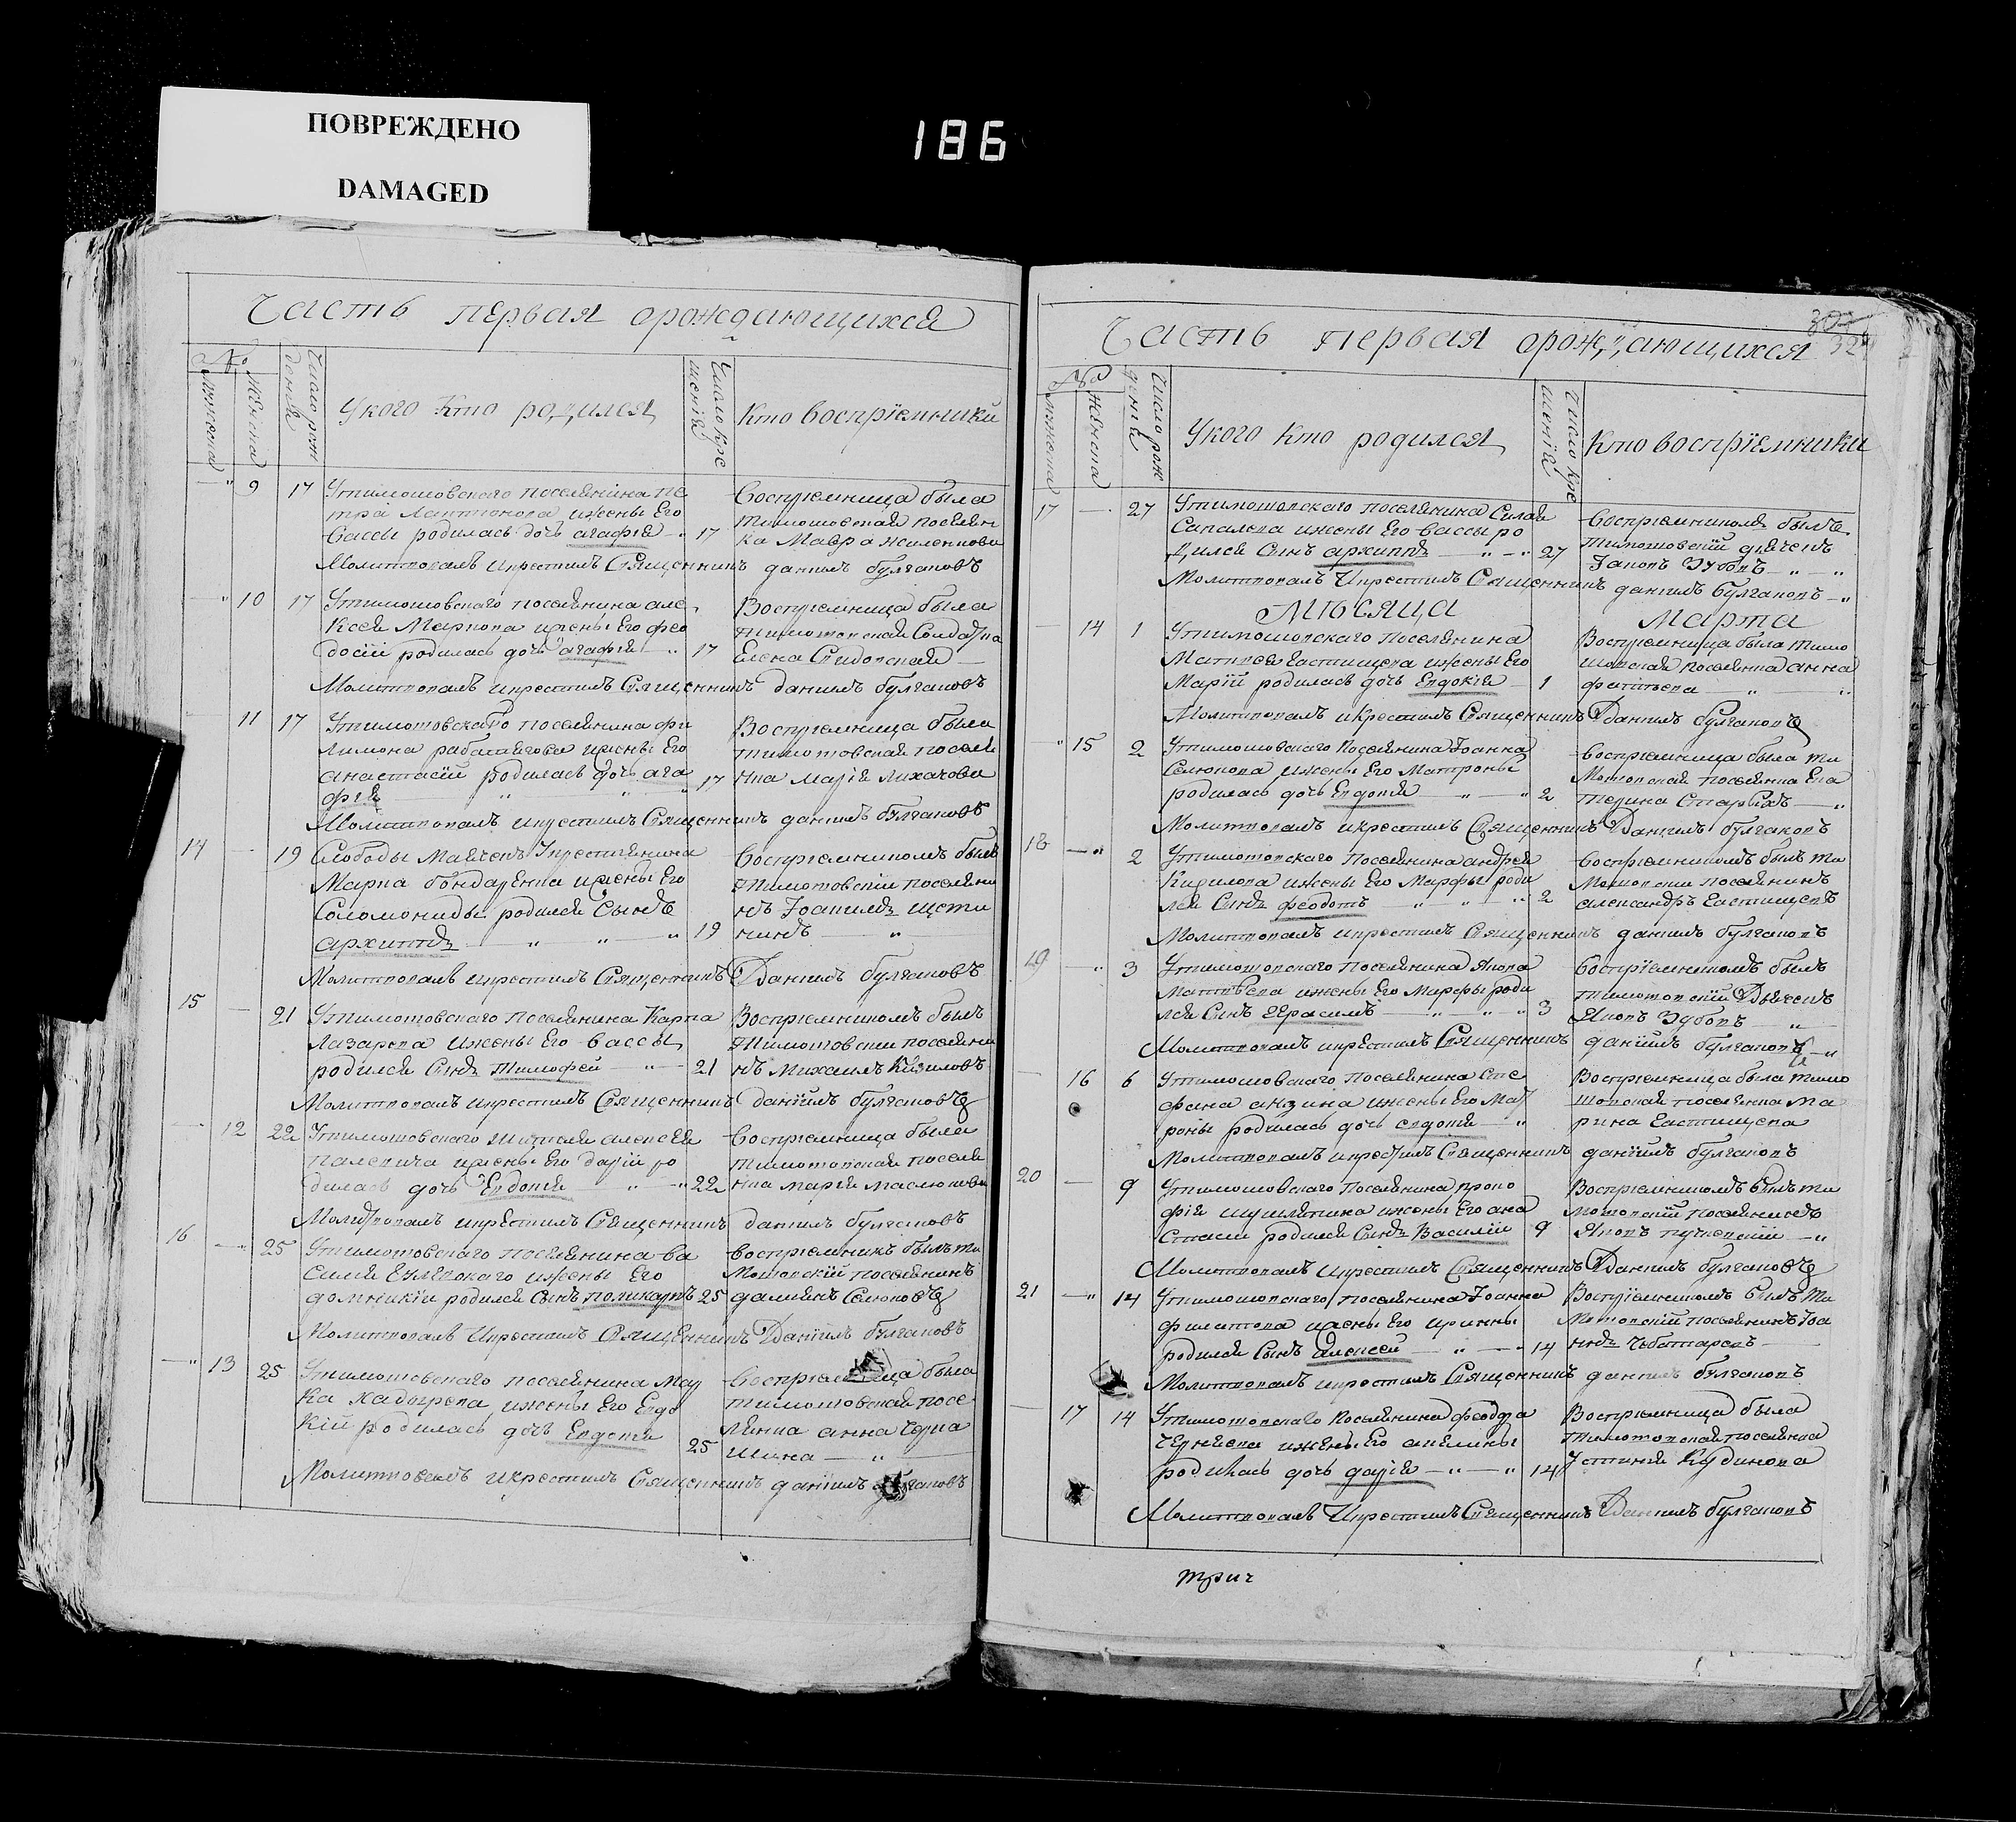 ПОВРЕЖДЕНО
DAMAGED
186
Часть первая орождающихся
№
мужеска
женска
Число рож
денїя
Укого Кто родился
Число кре
щенїя
Кто восприемники
9 17 Утимошовского поселянина пе
тра Лаптионова ижены Его
Вассы родилась дочь агафїя 17
Восприемница была
тимошовская поселян
ка Мавра
Молитвовалъ икрестилъ Священникъ данїилъ булгаковъ
10 17 Утимошовского поселянина але
ксея Маркова ижены Его фео
досїи родилась дочь агафїя 17
Восприемница была
тимошовская Солдатка
Елена Свидовская
Молитвовалъ икрестилъ Священникъ данїилъ булгаковъ
11 17 Утимошовского поселянина фи
лимона ижены Его
анастасїи родилась дочь ага
фїя 17
Восприемница была
тимошовская поселя
нка Марїя лихачова
Молитвовалъ икрестилъ Священникъ данїилъ булгаковъ
14 19 Слободы Маячекъ Укрестянина
Марка бондаренка ижены Его
Соломониды родился Сынъ
архиппъ 19
Восприемникомъ былъ
тимошовскїи поселяни
нъ щети
нинъ
Молитвовалъ икрестилъ Священникъ Данїилъ булгаковъ
15 21 Утимошовского поселянина Карпа
Лазарева ижены Его вассы
родился Сынъ Тимофей 21
Восприемникомъ былъ
тимошовскїи поселяни
нъ Михаилъ Кизиловъ
Молитвовалъ икрестилъ Священникъ данїилъ булгаковъ
12 22 Утимошовского жителя алексея
Палевича ижены Его дарїи ро
дилась дочь Евдокїя 22
Восприемница была
тимошовская поселя
нка марїя маслюкова
Молитвовалъ икрестилъ Священникъ данїилъ булгаковъ
16 25 Утимошовского поселянина ва
силя ижены Его
домникїи родился Сынъ поликарпъ 25
восприемникъ былъ ти
мошовскїй поселянинъ
дамїянъ Селюковъ
Молитвовалъ икрестилъ Священникъ Данїилъ булгаковъ
13 25 Утимошовского поселянина Мар
ка ижены Его Евдо
кїи родилась дочь Евдокїя 25
была
тимошовская посе
лянка анна черка
шина
Молитвовалъ икрестилъ Священникъ данїилъ булгаковъ
Часть первая орождающихся
307
32
№
мужеска
женска
Число рож
денїя
Укого кто родился
Число кре
щенїя
Кто восприемники
17 27 Утимошовского поселянина Силы
Савельева ижены Его вассы ро
дился Сынъ архиппъ 27
Восприемникомъ былъ
тимошовскїй дьячекъ
Iаковъ Зубовъ
Молитвовалъ икрестилъ Священникъ данїилъ булгаковъ
Мѣсяца Марта
14 1 Утимошовского поселянина
Матвея Евстищева ижены Его
Марїи родилась дочь Евдокїя 1
Восприемница была тимо
шовская поселянка анна
филипьева
Молитвовалъ икрестилъ Священникъ Данїилъ булгаковъ
15 2 Утимошовского поселянина Iоанна
Селюкова ижены Его Матроны
родилась дочь Евдокїя 2
восприемница была ти
мошовская поселянка Ека
терина Старыхъ
Молитвовалъ икрестилъ Священникъ Данїилъ булгаковъ
18 2 Утимошовского поселянина андрея
Кирилова ижены Его Марфы роди
лся Сынъ феодотъ 2
восприемникомъ былъ ти
мошовскїи поселянинъ
александръ Евстищевъ
Молитвовалъ икрестилъ Священникъ данїилъ булгаковъ
19 3 Утимошовского поселянина Якова
Матвѣева ижены Его Марфы роди
лся Синъ Герасимъ 3
Восприемникомъ былъ
тимошовскїй Дьячекъ
Яковъ Зубовъ
Молитвовалъ икрестилъ Священникъ данїилъ булгаковъ
16 6 Утимошовского поселянина Сте
фана анзина ижены Его Мат
роны родилась дочь евдокїя
Восприемница была тимо
шовская поселянка Ма
рина Евстищева
Молитвовалъ икрестилъ Священникъ данїилъ булгаковъ
20 9 Утимошовского поселянина проко
фїя шушлякина ижены Его ана
стасїи родился Сынъ Василїи 9
Восприемникомъ былъ ти
мошовскїй поселянинъ
Яковъ
Молитвовалъ икрестилъ Священникъ Данїилъ булгаковъ
21 14 Утимошовского поселянина Iоанна
филипова ижены Его ирины
родился Сынъ Алексей 14
Восприемникомъ былъ ти
мошовскїй поселянинъ Iоа
ннъ Чоботаревъ
Молитвовалъ икрестилъ Священникъ данїилъ булгаковъ
17 14 Утимошовского поселянина феодора
Черняева ижены Его акелины
родилась дочь дарїя 14
Восприемница была
тимошовская поселянка
Устинїя Кудинова
Молитвовалъ икрестилъ Священникъ Данїилъ булгаковъ